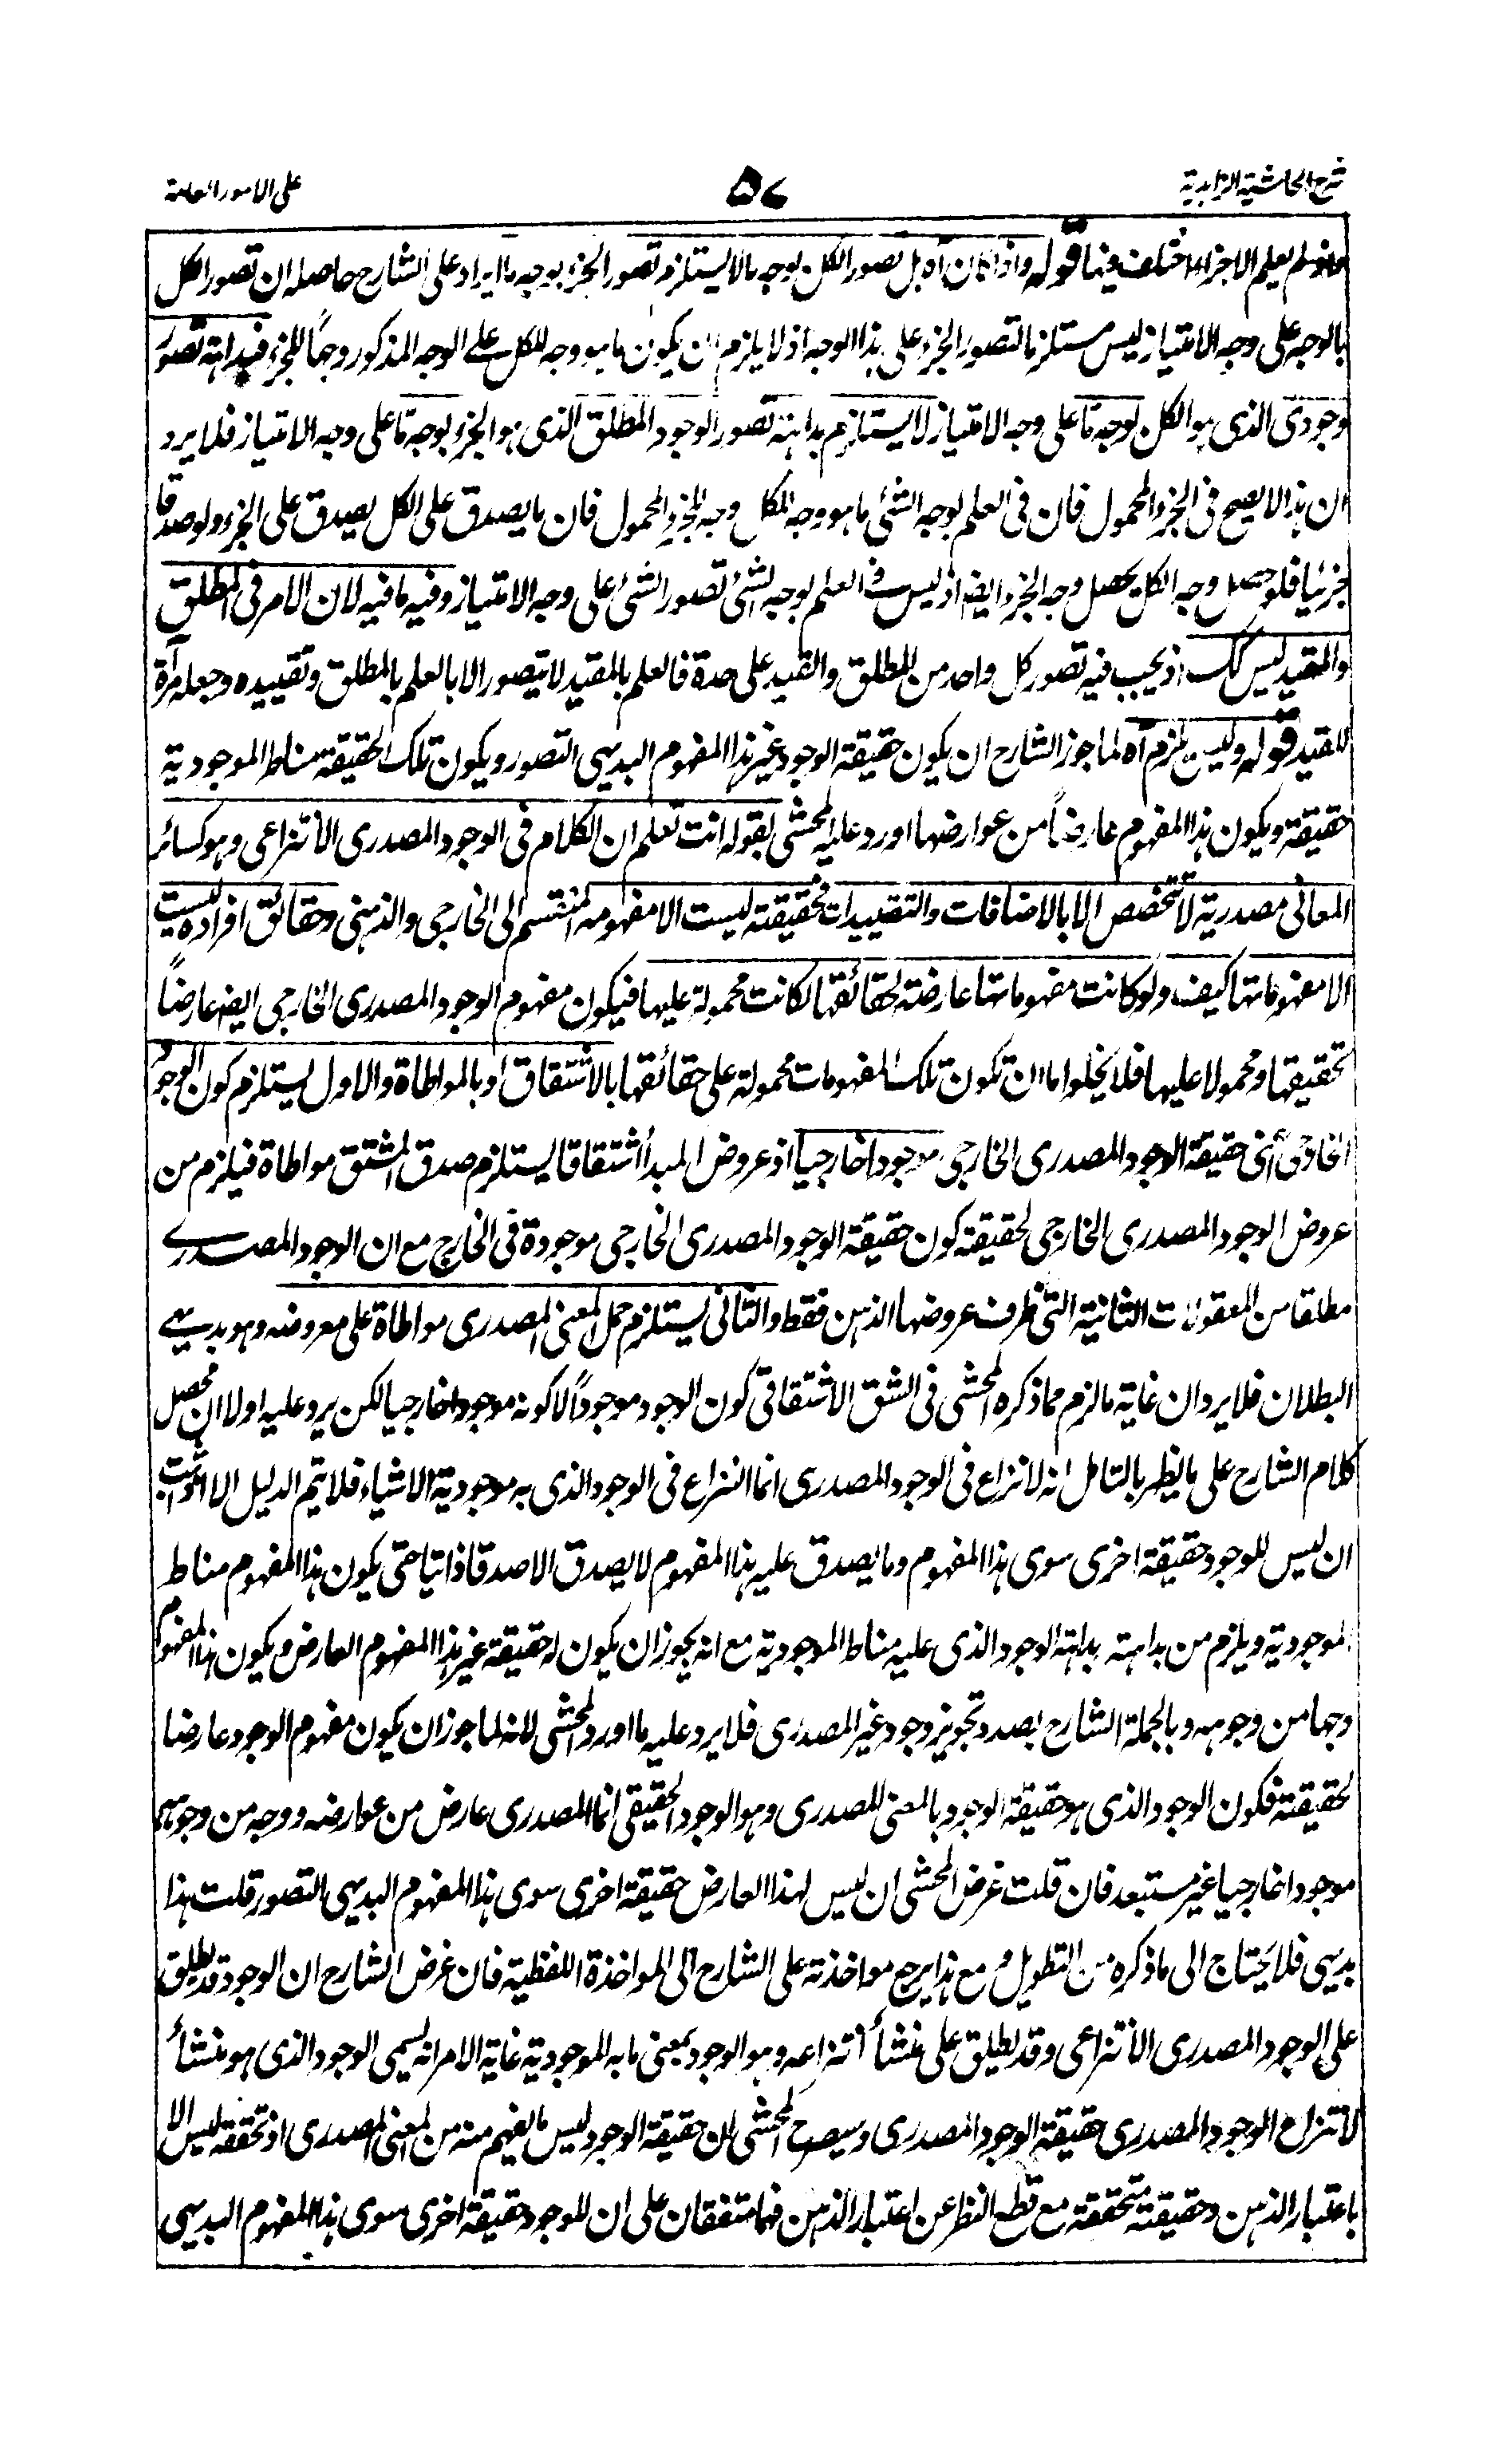 شرح الحاشية الزاهدية
٥٧
على الامور العامة
لم يعلم الاجزاء لما اختلف فيها قوله واذا كان آه بل تصور الكل بوجه ما لا يستلزم تصور الجزء بوجه ما ايراد على الشارح حاصله ان تصور الكل
بالوجه على وجه الامتياز ليس مستلزما لتصور الجزء على هذا الوجه اذ لا يلزم ان يكون ما هو وجه للكل على الوجه المذكور وجهاً للجزء فبداهة تصور
وجودى الذى هو الكل بوجه ما على وجه الامتياز لا يستلزم بداهة تصور الوجود المطلق الذى هو الجزء بوجه ما على وجه الامتياز فلا يرد
ان هذا لا يصح فى الجزء المحمول فان فى العلم بوجه الشئ ما هو وجه للكل وجه للجزء المحمول فان ما يصدق على الكل يصدق على الجزء ولو صدقا
جزئيا فلو حصل وجه الكل يحصل وجه الجزء ايضا اذ ليس فى العلم بوجه الشئ تصور الشئ على وجه الامتياز وفيه ما فيه لان الامر فى المطلق
والمقيد ليس كك اذ يجب فيه تصور كل واحد من المطلق والقيد على حدة فالعلم بالمقيد لا يتصور الا بالعلم بالمطلق وتقييده وجعله مرآة
للمقيد قوله وليس يلزم آه لما جوز الشارح ان يكون حقيقة الوجود غير هذا المفهوم البديهى التصور ويكون تلك الحقيقة مناط الموجودية
حقيقة ويكون هذا المفهوم عارضاً من عوارضها اورد عليه المحشى بقوله انت تعلم ان الكلام فى الوجود المصدرى الانتزاعى وهو كسائر
المعانى مصدرية لا تتخصص الا بالاضافات والتقييدات فحقيقته ليست الا مفهومه المنقسم الى الخارجى والذهنى وحقائق افراده ليست
الا مفهوماتها كيف ولو كانت مفهوماتها عارضة لحقائقها لكانت محمولة عليها فيكون مفهوم الوجود المصدرى الخارجى ايضا عارضاً
لحقيقتها ومحمولا عليها فلا يخلوا ما ان تكون تلك المفهومات محمولة على حقائقها بالاشتقاق او بالمواطاة والاول يستلزم كون الوجود
الخارجى اعنى حقيقة الوجود المصدرى الخارجى موجودا خارجيا اذ عروض المبدأ اشتقاقا يستلزم صدق المشتق مواطاة فيلزم من
عروض الوجود المصدرى الخارجى لحقيقة كون حقيقة الوجود المصدرى الخارجى موجودة فى الخارج مع ان الوجود المصدرى
مطلقا من المعقولات الثانية التى ظرف عروضها الذهن فقط والثانى يستلزم حمل المعنى المصدرى مواطاة على معروضه وهو بديهى
البطلان فلا يرد ان غاية ما لزم مما ذكره المحشى فى الشق الاشتقاقى كون الوجود موجوداً لا كونه موجودا خارجيا لكن يرد عليه اولا ان محصل
كلام الشارح على ما يظهر بالتامل انه لا نزاع فى الوجود المصدرى انما النزاع فى الوجود الذى به موجودية الاشياء فلا يتم الدليل الا اذا ثبت
ان ليس للوجود حقيقة اخرى سوى هذا المفهوم وما يصدق عليه هذا المفهوم لا يصدق الا صدقا ذاتيا حتى يكون هذا المفهوم مناط
الموجودية ويلزم من بداهته بداهة الوجود الذى عليه مناط الموجودية مع انه يجوز ان يكون له حقيقة غير هذا المفهوم العارض ويكون هذا المفهوم
وجها من وجوهه وبالجملة الشارح بصدد تجويز وجود غير المصدرى فلا يرد عليه ما اورد المحشى لانه لما جوز ان يكون مفهوم الوجود عارضا
لحقيقته فكون الوجود الذى هو حقيقة الوجود بالمعنى المصدرى وهو الوجود الحقيقى انما المصدرى عارض من عوارضه ووجه من وجوهه
موجودا خارجيا غير مستبعد فان قلت غرض المحشى ان ليس لهذا العارض حقيقة اخرى سوى هذا المفهوم البديهى التصور قلت هذا
بديهى فلا يحتاج الى ما ذكره من التطويل ومع هذا يرجع مواخذته على الشارح الى المواخذة اللفظية فان غرض الشارح ان الوجود قد يطلق
على الوجود المصدرى الانتزاعى وقد يطلق على منشأ انتزاعه وهو الوجود بمعنى ما به الموجودية غاية الامر انه يسمى الوجود الذى هو منشأ
لانتزاع الوجود المصدرى حقيقة الوجود المصدرى وسيصرح المحشى ان حقيقة الوجود ليس ما يفهم منه من المعنى المصدرى اذ تحققه ليس الا
باعتبار الذهن وحقيقته متحققة مع قطع النظر عن اعتبار الذهن فهما متفقان على ان للوجود حقيقة اخرى سوى هذا المفهوم البديهى